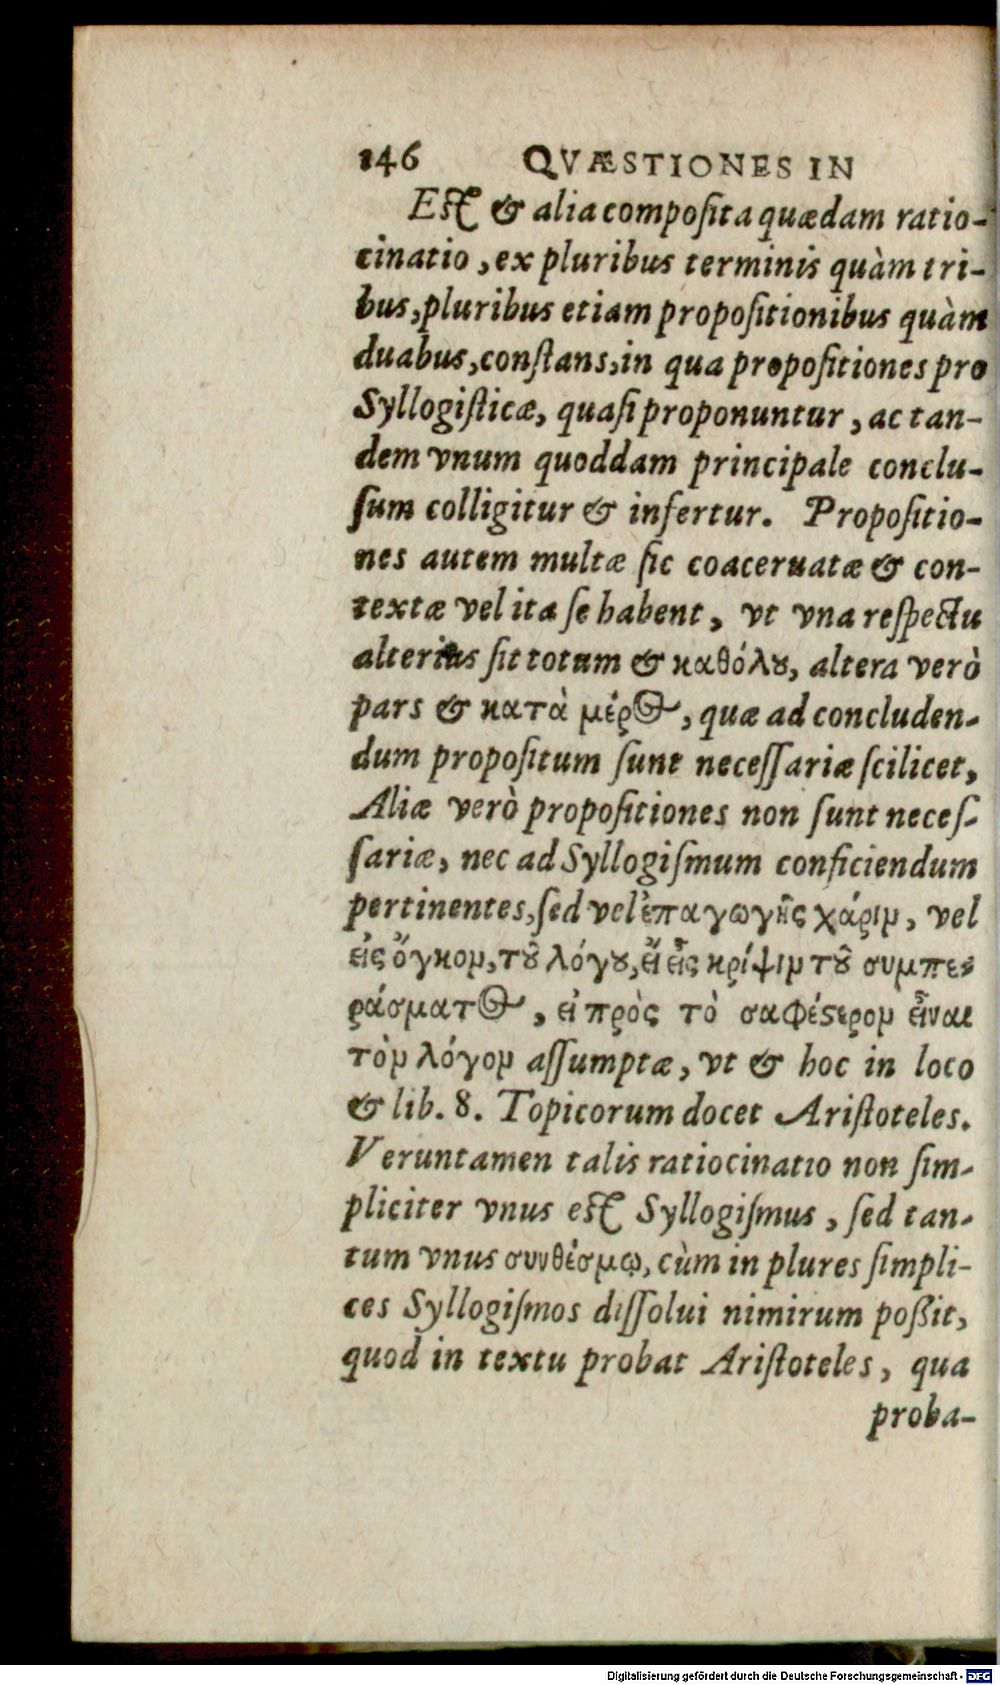 146 QVÆSTIONES IN
Est & alia composita quædam ratio-
cinatio, ex pluribus terminis quàm tri-
bus, pluribus etiam propositionibus quàm
duabus, constans, in qua propositiones pro
Syllogisticæ, quasi proponuntur, ac tan-
dem vnum quoddam principale conclu-
sum colligitur & infertur. Propositio-
nes autem multæ sic coaceruatæ & con-
textæ vel ita se habent, vt vna respectu
alterius sit totum & καθόλȣ, altera verò
pars & κατὰ μέρος, quæ ad concluden-
dum propositum sunt necessariæ scilicet,
Aliæ verò propositiones non sunt neces-
sariæ, nec ad Syllogismum conficiendum
pertinentes, sed vel ἐπαγωγῆς χάριν, vel
εἰς ὄγκον, τȣ͂ λόγȣ, εἴ εἶς κρίψιν τȣ͂ συμπε-
ράσματος, εἰ πρὸς τὸ σαφέϛερον εἶναι
τὸν λόγον assumptæ, vt & hoc in loco
& lib. 8. Topicorum docet Aristoteles.
Veruntamen talis ratiocinatio non sim-
pliciter vnus est Syllogismus, sed tan-
tum vnus συνθέσμῳ, cùm in plures simpli-
ces Syllogismos dissolui nimirum poßit,
quod in textu probat Aristoteles, qua
proba-
Digitalisierung gefördert durch die Deutsche Forschungsgemeinschaft - DFG